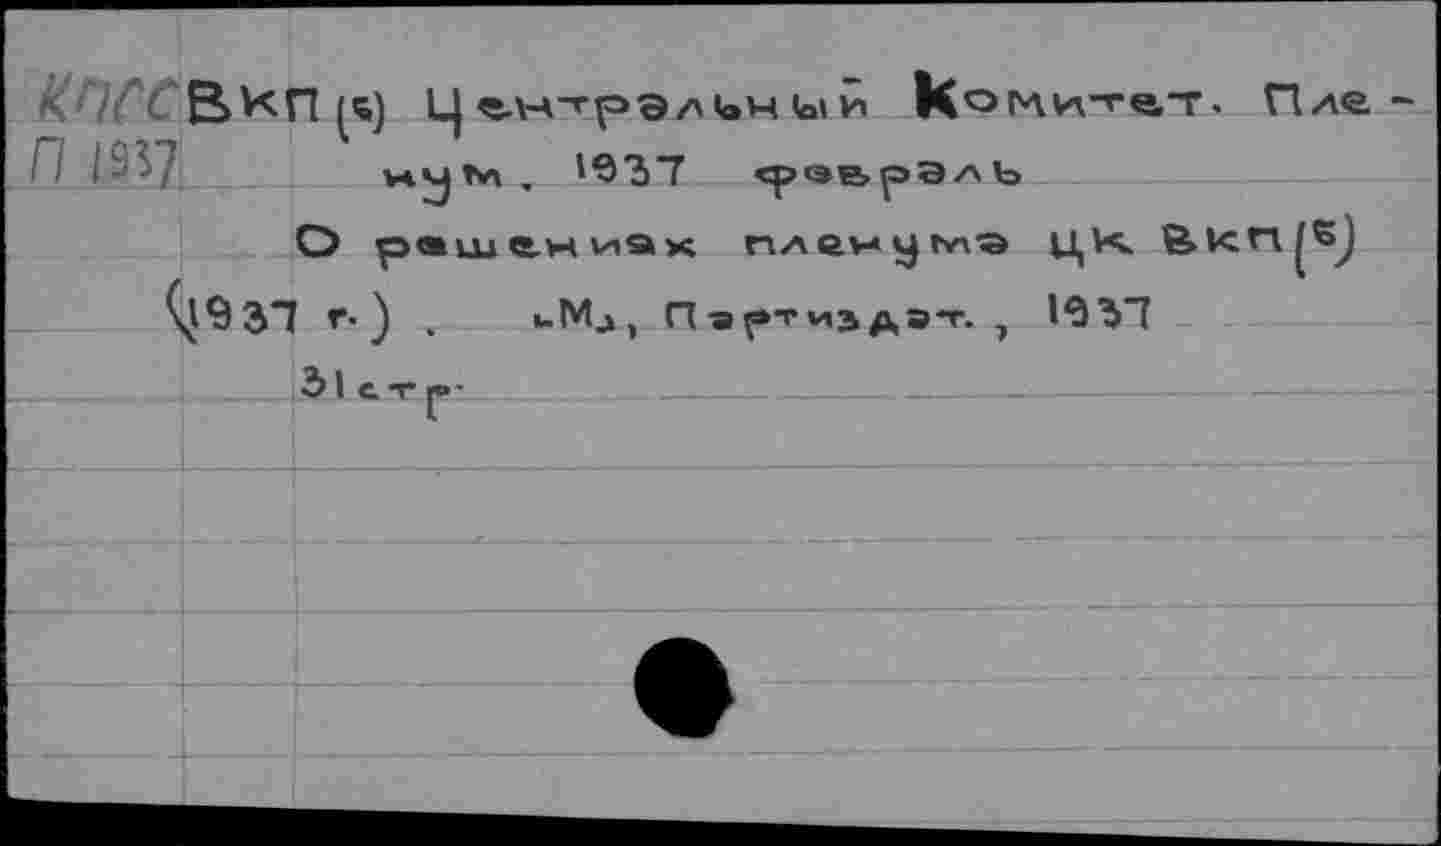 КПСС ВКП(б) Центральный Комитет. Пле-
П 1937 нум. 1937 февраль
О решениях пленума ЦК ВКП(б)
(1937 г.). [М.], Партиздат., 1937
31 стр.